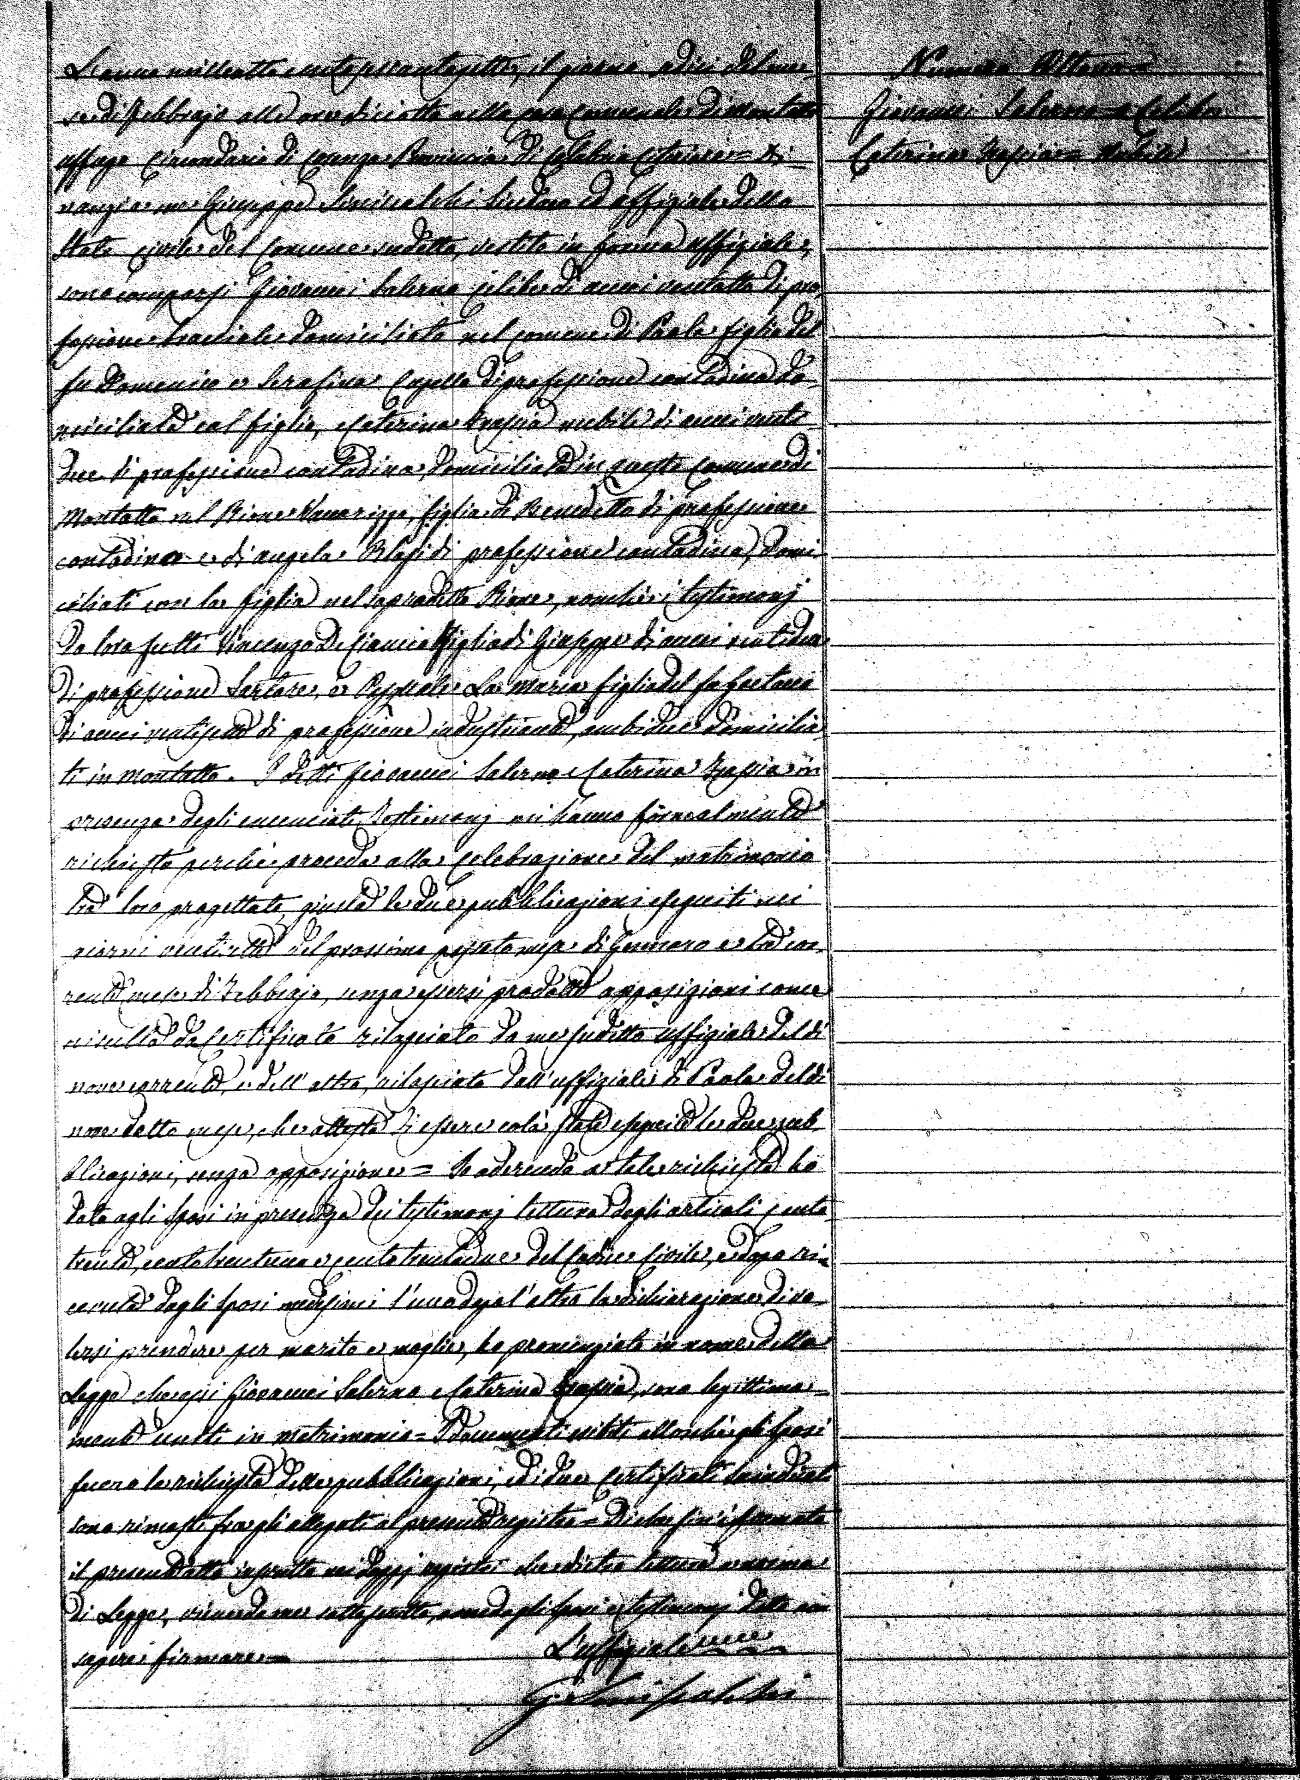 L'anno milleottocentosessantasette, il giorno sedici del me-
se di Febbrajo alle ore diciotto nella casa Comunale di Montalto
uffugo Circondario di Cosenza Provincia di Calabria Citeriore = Di
nanzi a me Giuseppe Siniscalchi Sindaco ed uffiziale dello
Stato civile del Comune sudetto, vestito in forma uffiziale,
sono comparsi Giovanni Salerno celibe di anni ventotto di pro-
fessione bracciale domiciliato nel comune di Paola figlio del
fu Domenico e Serafina di professione contadina do-
miciliata col figlio, e Caterina nubile di anni venti-
due di professione contadina, domiciliata in questo Comune di
Montalto nel Rione Vaccarizzo, figlia di Benedetto di professione
contadino e di Angela Blasi di professione contadina, domi-
ciliati con la figlia nel sopradetto Rione, nonchè i testimonj
da loro scelti Vincenzo De figlio di Giuseppe di anni ventidue
di professione Sartore, e Pasquale La Maria figlio del fu Gaetano
di anni ventisette di professione industriante, ambidue domicilia-
ti in Montalto. I detti Giovanni Salerno e Caterina in
presenza degli enunciati Testimonj mi hanno formalmente
richiesto perchè proceda alla celebrazione del matrimonio
tra loro progettato, giusta le due pubblicazioni eseguiti nei
giorni ventisette del prossimo passato mese di Gennaro e tre cor-
rente mese di Febbrajo, senza essersi prodotte opposizioni come
risulta da certificato rilasciato da me sudetto uffiziale del dì
nove corrente, e dell'altro, rilasciato dall'uffiziale di Paola del dì
nove detto mese, che attesta di essere colà state eseguite le due pub
blicazioni, senza opposizione = Io aderendo a tale richiesta ho
dato agli Sposi in presenza dei testimonj lettura degli articoli cento
trenta, centotrentuno e centotrentadue del Codice Civile, e dopo ri-
cevuta dagli Sposi medesimi l'uno dopo l'altro la dichiarazione di vo-
lersi prendere per marito e moglie, ho pronunziato in nome della
Legge che essi Giovanni Salerno e Caterina sono legittima-
mente uniti in matrimonio = I documenti esibiti allorchè gli Sposi
fecero la richiesta delle pubblicazioni, ed i due Certificati
sono rimasti fra gli allegati al presente registro = Di che si è formato
il presente atto inscritto nei doppj registri che dietro lettura a norma
di Legge, viene da me sottoscritto, avendo gli sposi e testimonj detto non
sapere firmare =
L'uffiziale
G. Siniscalchi
Numero Ottavo
Giovanni Salerno = Celibe
Caterina = Nubile